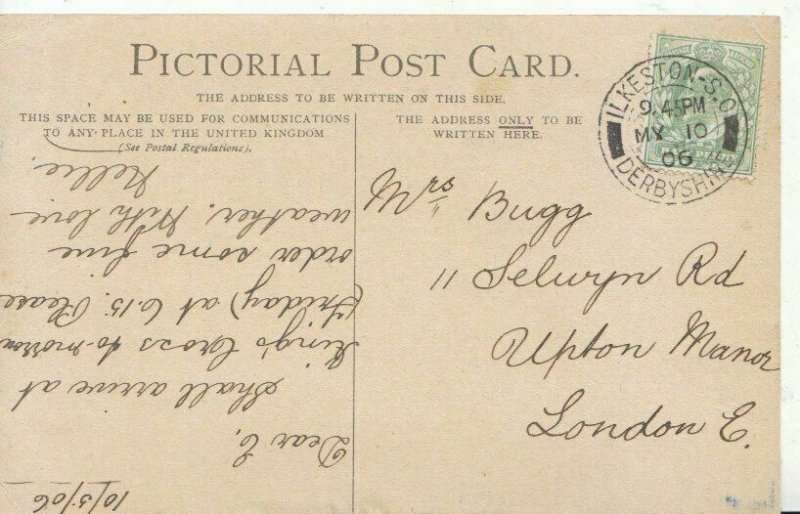 PICTORIAL POST CARD.
THE ADDRESS TO BE WRITTEN ON THIS SIDE.
THIS SPACE MAY BE USED FOR COMMUNICATIONS
TO ANY PLACE IN THE UNITED KINGDOM
(See Postal Regulations).
THE ADDRESS ONLY TO BE
WRITTEN HERE.
ILKESTON-S.O
9.45PM
MY 10
06
DERBYSHIRE
Mrs Bugg
11 Selwyn Rd
Upton Manor
London E.
10/5/06
Dear E,
Shall arrive at
King's Cross to-morrow
(Friday) at 6.15. Please
order some fine
weather. With love
Nellie.